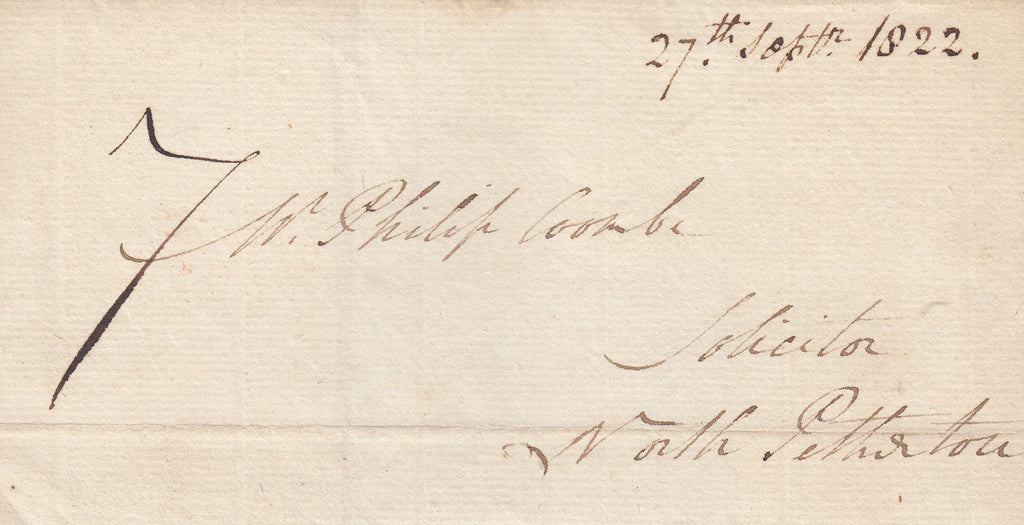 27th. Septr. 1822.
7
Mr. Philip Coombe
Solicitor
North Petherton